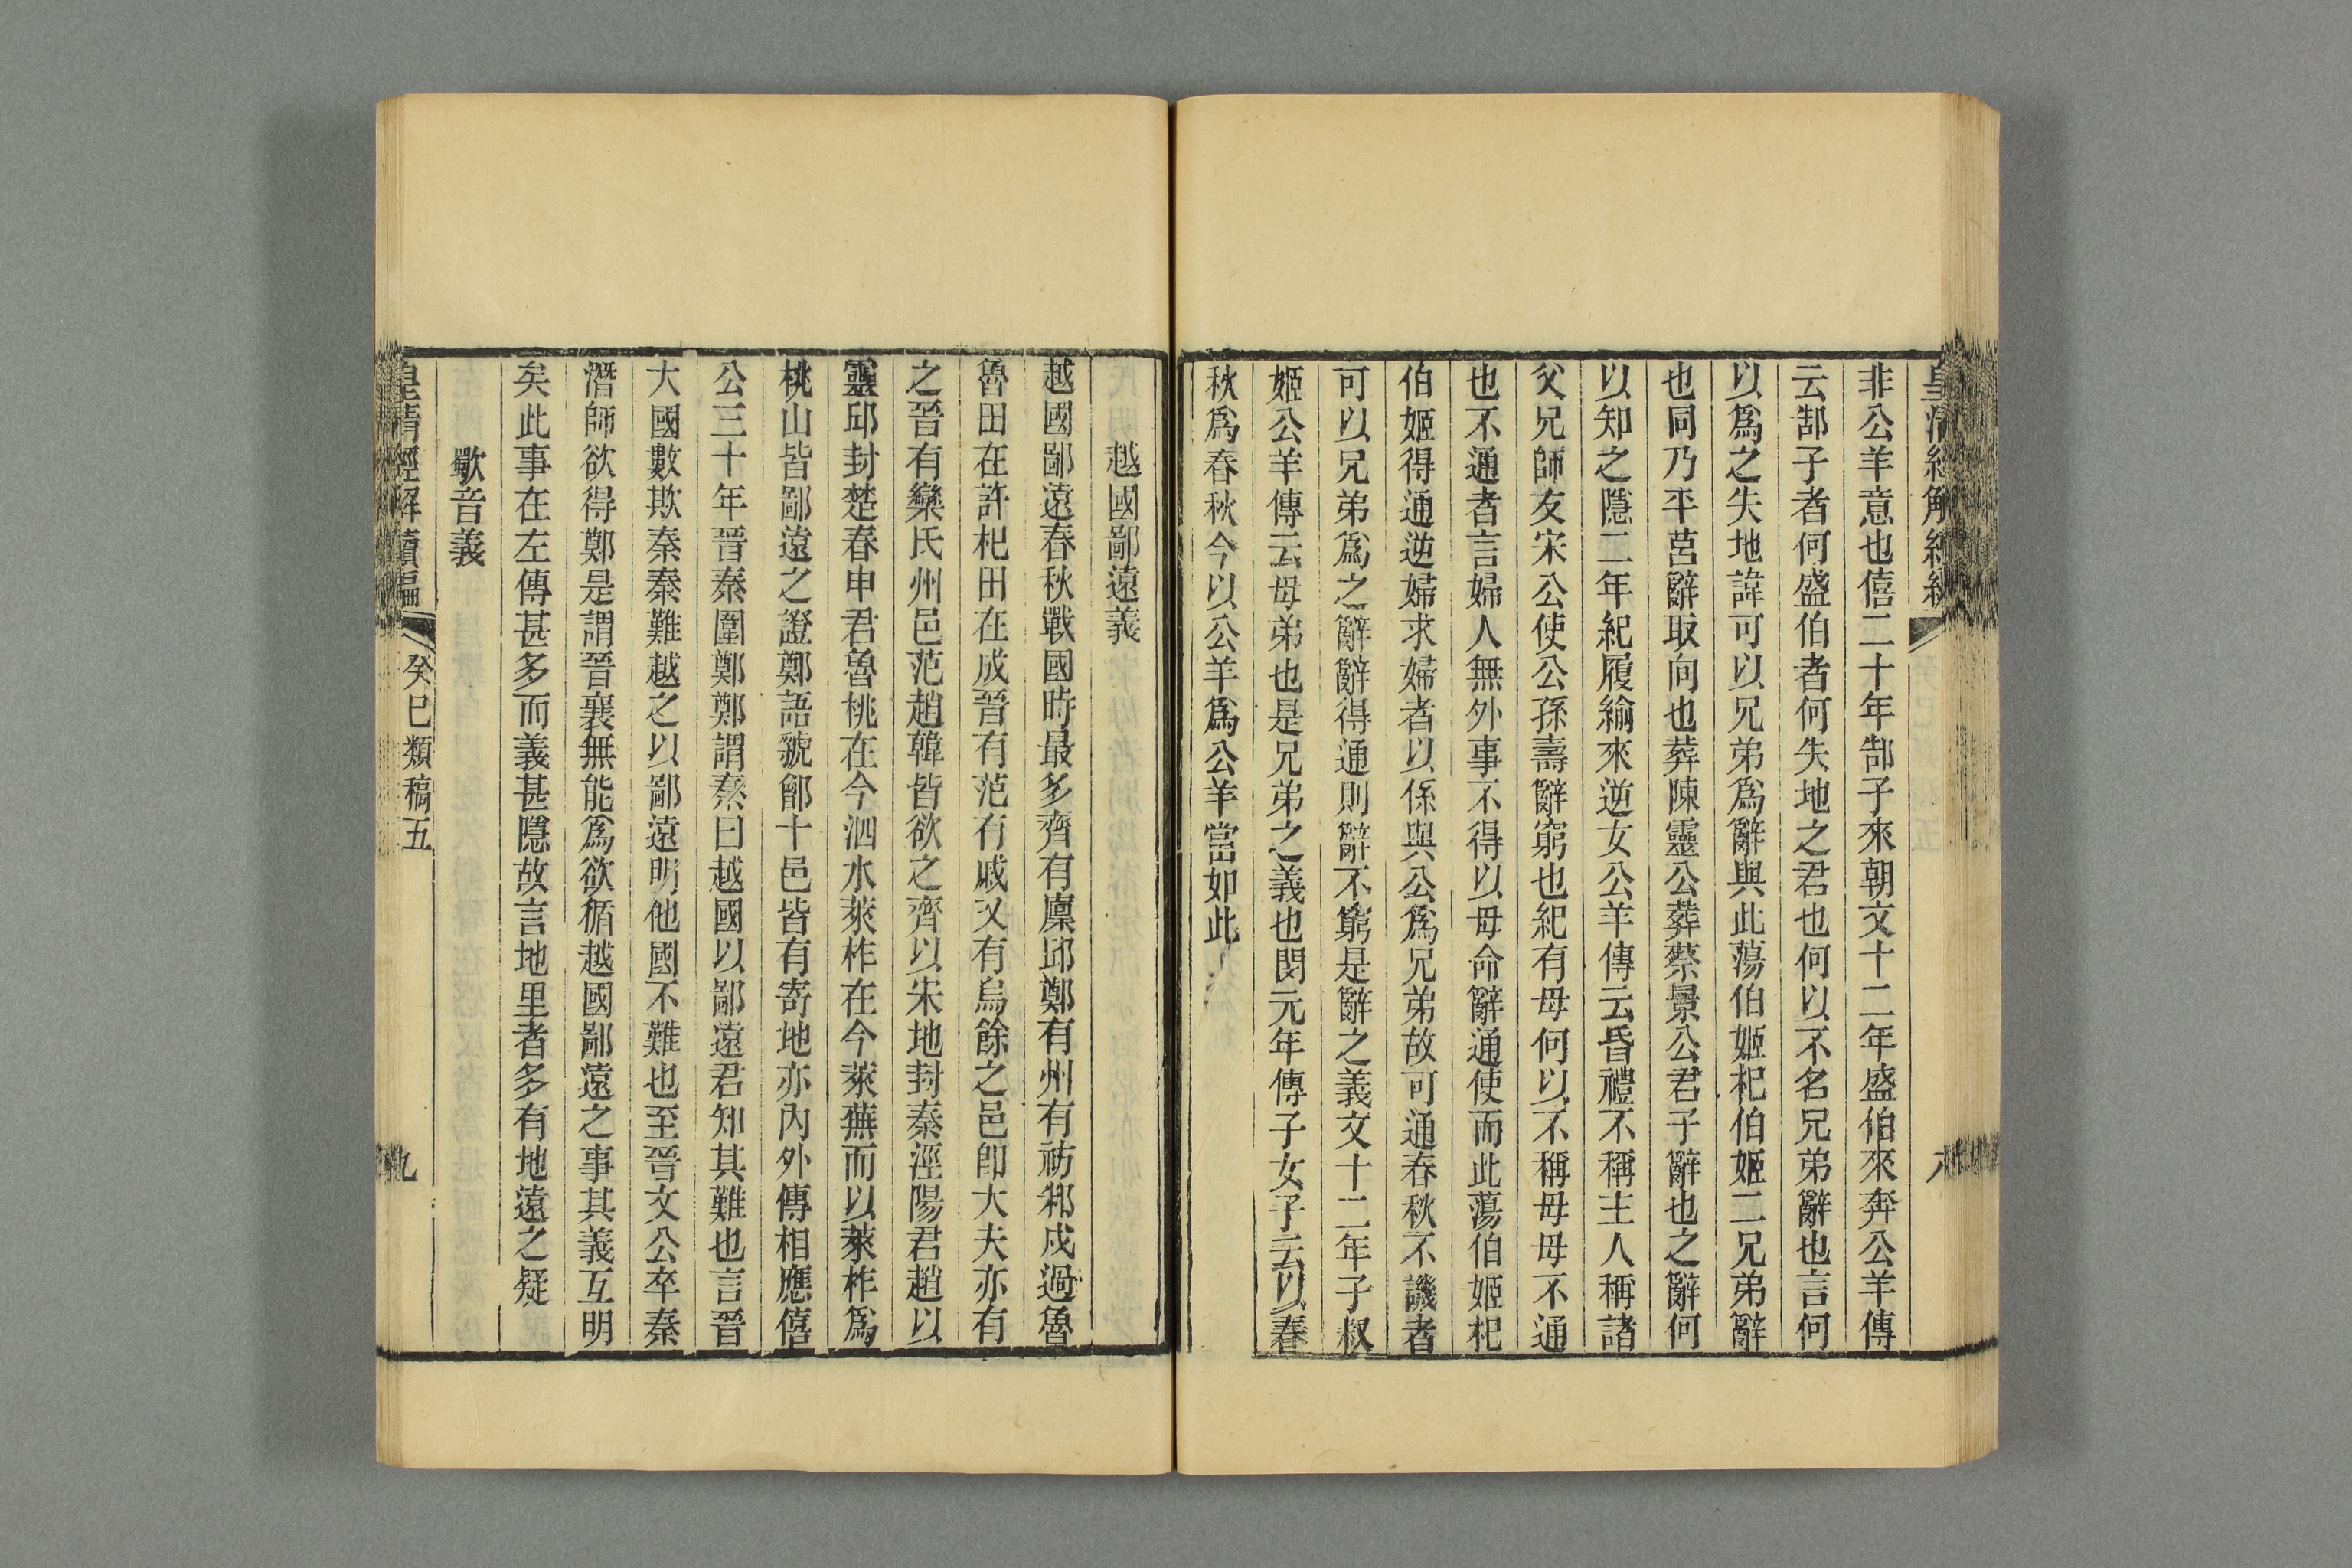 皇清經解續編
八
非公羊意也僖二十年郜子來朝文十二年盛伯來奔公羊傳
云郜子者何盛伯者何失地之君也何以不名兄弟辭也言何
以爲之失地諱可以兄弟爲辭與此蕩伯姬杞伯姬二兄弟辭
也同乃平莒辭取向也葬陳靈公葬蔡景公君子辭也之辭何
以知之隱二年紀履緰來逆女公羊傳云昏禮不稱主人稱諸
父兄師友宋公使公孫壽辭窮也紀有母何以不稱母母不通
也不通者言婦人無外事不得以母命辭通使而此蕩伯姬杞
伯姬得通逆婦求婦者以係與公爲兄弟故可通春秋不譏者
可以兄弟爲之辭辭得通則辭不窮是辭之義文十二年子叔
姬公羊傳云母弟也是兄弟之義也閔元年傳子女子云以春
秋爲春秋今以公羊爲公羊當如此
越國鄙遠義
越國鄙遠春秋戰國時最多齊有廩邱鄭有州有祊邾戍過魯
魯田在許杞田在成晉有范有戚又有烏餘之邑卽大夫亦有
之晉有欒氏州邑范趙韓皆欲之齊以宋地封秦涇陽君趙以
靈邱封楚春申君魯桃在今泗水萊柞在今萊蕪而以萊柞爲
桃山皆鄙遠之證鄭語虢鄶十邑皆有寄地亦內外傳相應僖
公三十年晉秦圍鄭鄭謂秦曰越國以鄙遠君知其難也言晉
大國數欺秦秦難越之以鄙遠明他國不難也至晉文公卒秦
潛師欲得鄭是謂晉襄無能爲欲循越國鄙遠之事其義互明
矣此事在左傳甚多而義甚隱故言地里者多有地遠之疑
歜音義
皇清經解續編
癸巳類稿五
九